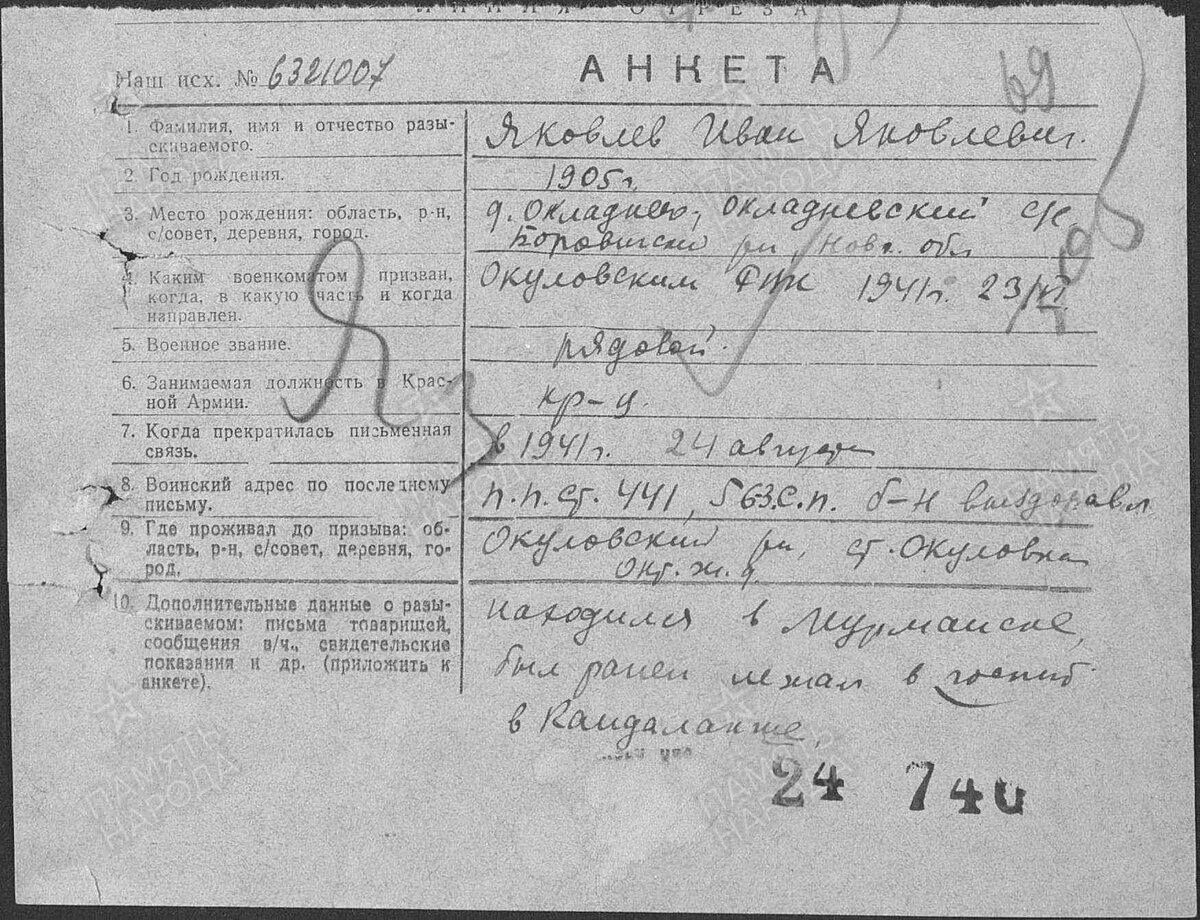 ЛИНИЯ ОТРЕЗА
Наш исх. № 6321007
АНКЕТА
69
1. Фамилия, имя и отчество разы-
скиваемого.
Яковлев Иван Яковлевич.
2. Год рождения.
1905г.
3. Место рождения: область, р-н,
с/совет, деревня, город.
д. Окладнево, Окладневский с/с
Боровичский р-н Новг. обл
4. Каким военкоматом призван,
когда, в какую часть и когда
направлен.
Окуловским РВК 1941г. 23/VI
5. Военное звание.
рядовой.
6. Занимаемая должность в Крас-
ной Армии.
кр-ц.
7. Когда прекратилась письменная
связь.
в 1941г. 24 августа
8. Воинский адрес по последнему
письму.
п.п.ст. 441, 563.с.п. б-н выздоравл
9. Где проживал до призыва: об-
ласть, р-н, с/совет, деревня, го-
род.
Окуловский р-н, ст. Окуловка
Окт. ж. д.
10. Дополнительные данные о разы-
скиваемом: письма товарищей,
сообщения в/ч., свидетельские
показания и др. (приложить к
анкете).
находился в Мурманске,
был ранен лежал в госпит
в Кандалакше.
24 740
Я
ПАМЯТЬ
НАРОДА